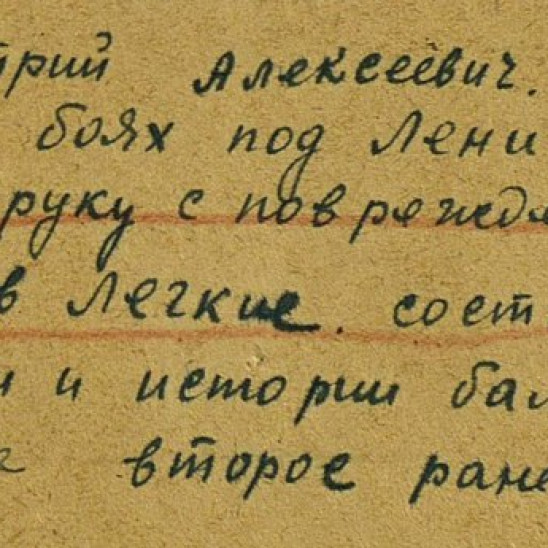 трий Алексеевич.
боях под Лени
руку с поврежде
в легкие. сост
и и истории бал
второе ране